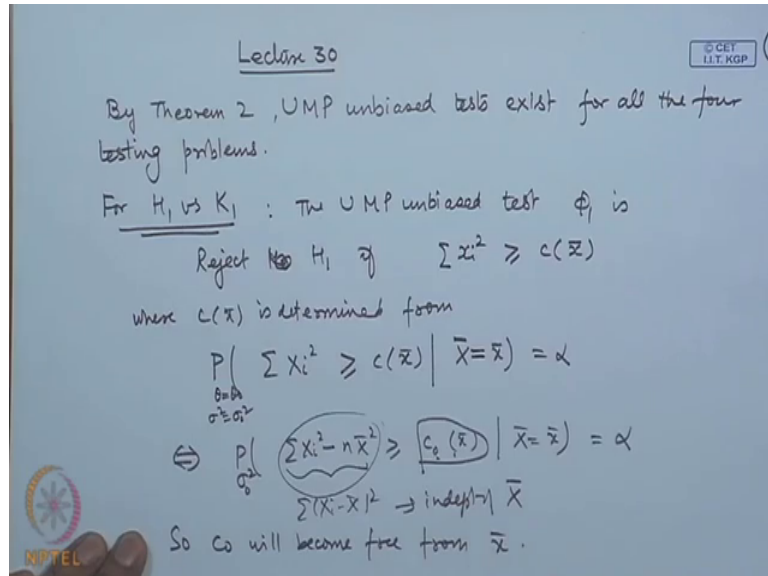 Lecture 30
© CET
I.I.T. KGP
By Theorem 2, UMP unbiased tests exist for all the four
testing problems.
For H₁ vs K₁ : The UMP unbiased test ϕ₁ is
Reject H₁ if Σxi² ≥ c(x̄)
where c(x̄) is determined from
P( Σ Xi² ≥ c(x̄) | X̄ = x̄ ) = α
σ² = σ₀²
⇔ P( ΣXi² - nX̄² ≥ c₀(x̄) | X̄ = x̄ ) = α
σ₀²
Σ(Xi - X̄)² → indep of X̄
So c₀ will become free from x̄.
NPTEL